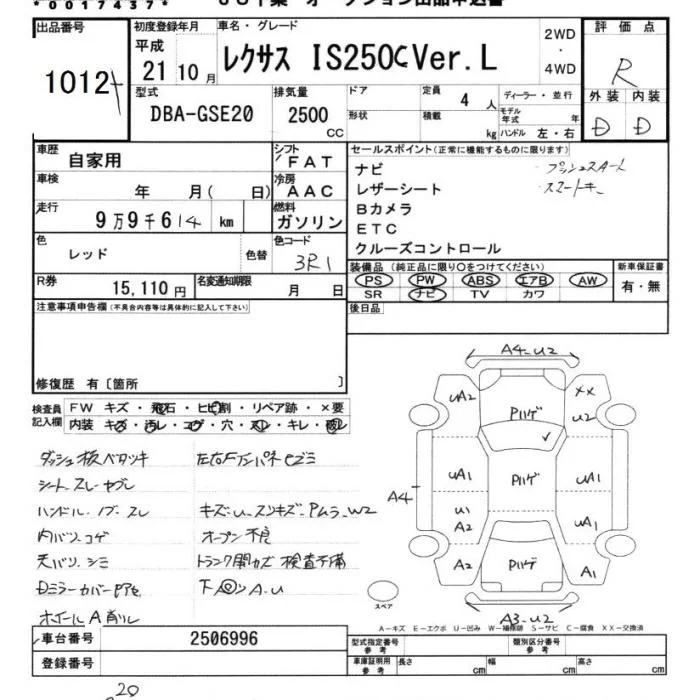 *0017437*
出品番号
1012
初度登録年月
平成
21 10 月
車名・グレード
レクサス IS250C Ver.L
2WD
・
4WD
評価点
R
外装 内装
D D
型式
DBA-GSE20
排気量
2500
CC
ドア
形状
定員
4 人
積載
kg
ディーラー・並行
モデル年式 年
ハンドル 左・右
車歴
自家用
シフト
FAT
車検
年 月( 日)
冷房
AAC
走行
9万9千614 km
燃料
ガソリン
色
レッド
色替
色コード
3R1
R券
15,110円
名変通知期限
月 日
セールスポイント(正常に機能するものに限ります)
ナビ
レザーシート
Bカメラ
ETC
クルーズコントロール
プッシュスタート
スマートキー
装備品(純正品に限り○をつけてください)
PS PW ABS エアB AW
SR ナビ TV カワ
新車保証書
有・無
後日品
注意事項申告欄(不具合内容等は具体的に記入して下さい)
修復歴 有〔箇所 〕
検査員記入欄
FW キズ・飛石・ヒビ割・リペア跡・×要
内装 キズ・汚レ・コゲ・穴・スレ・キレ・
ダッシュ板ベタツキ
シートスレ
ハンドル・ノブ・スレ
内バリコゲ
天バリシミ
Dミラーカバー
ホイールA削レ
キズ・U・スリキズ・Pムラ・W2
オープン不良
検査不備
A4-U2
UA2
Pハゲ
××
U2
A4
UA1
Pハゲ
UA1
U1
A2
UA1
A2
Pハゲ
A1
A3-U2
スペア
A-キズ E-エクボ U-凹み W-補修跡 S-サビ C-腐食 XX-交換済
車台番号
2506996
登録番号
型式指定番号
参考
類別区分番号
参考
車庫証明用
参考
長さ cm
幅 cm
高さ cm
20